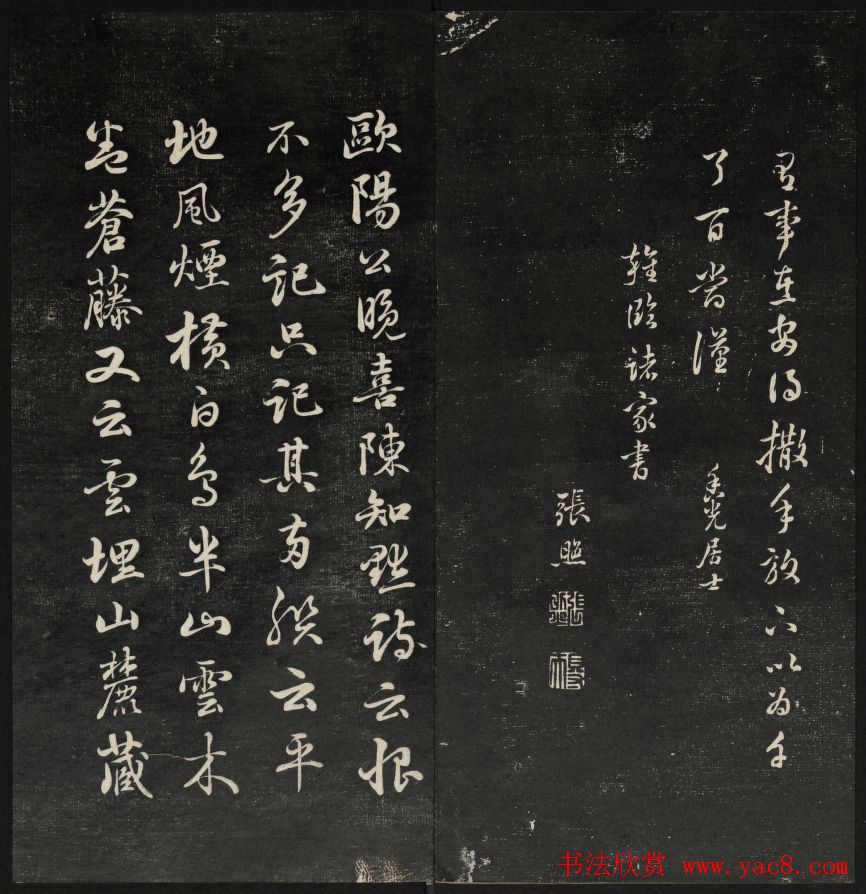 事在安得撒手放下以為千
了百當漢 香光居士
雜臨諸家書
張照
歐陽公晚喜陳知默詩云恨
不多記只記其両聯云平
地風煙橫白鳥半山雲木
卷蒼藤又云雲埋山麓藏
书法欣赏 www.yac8.com